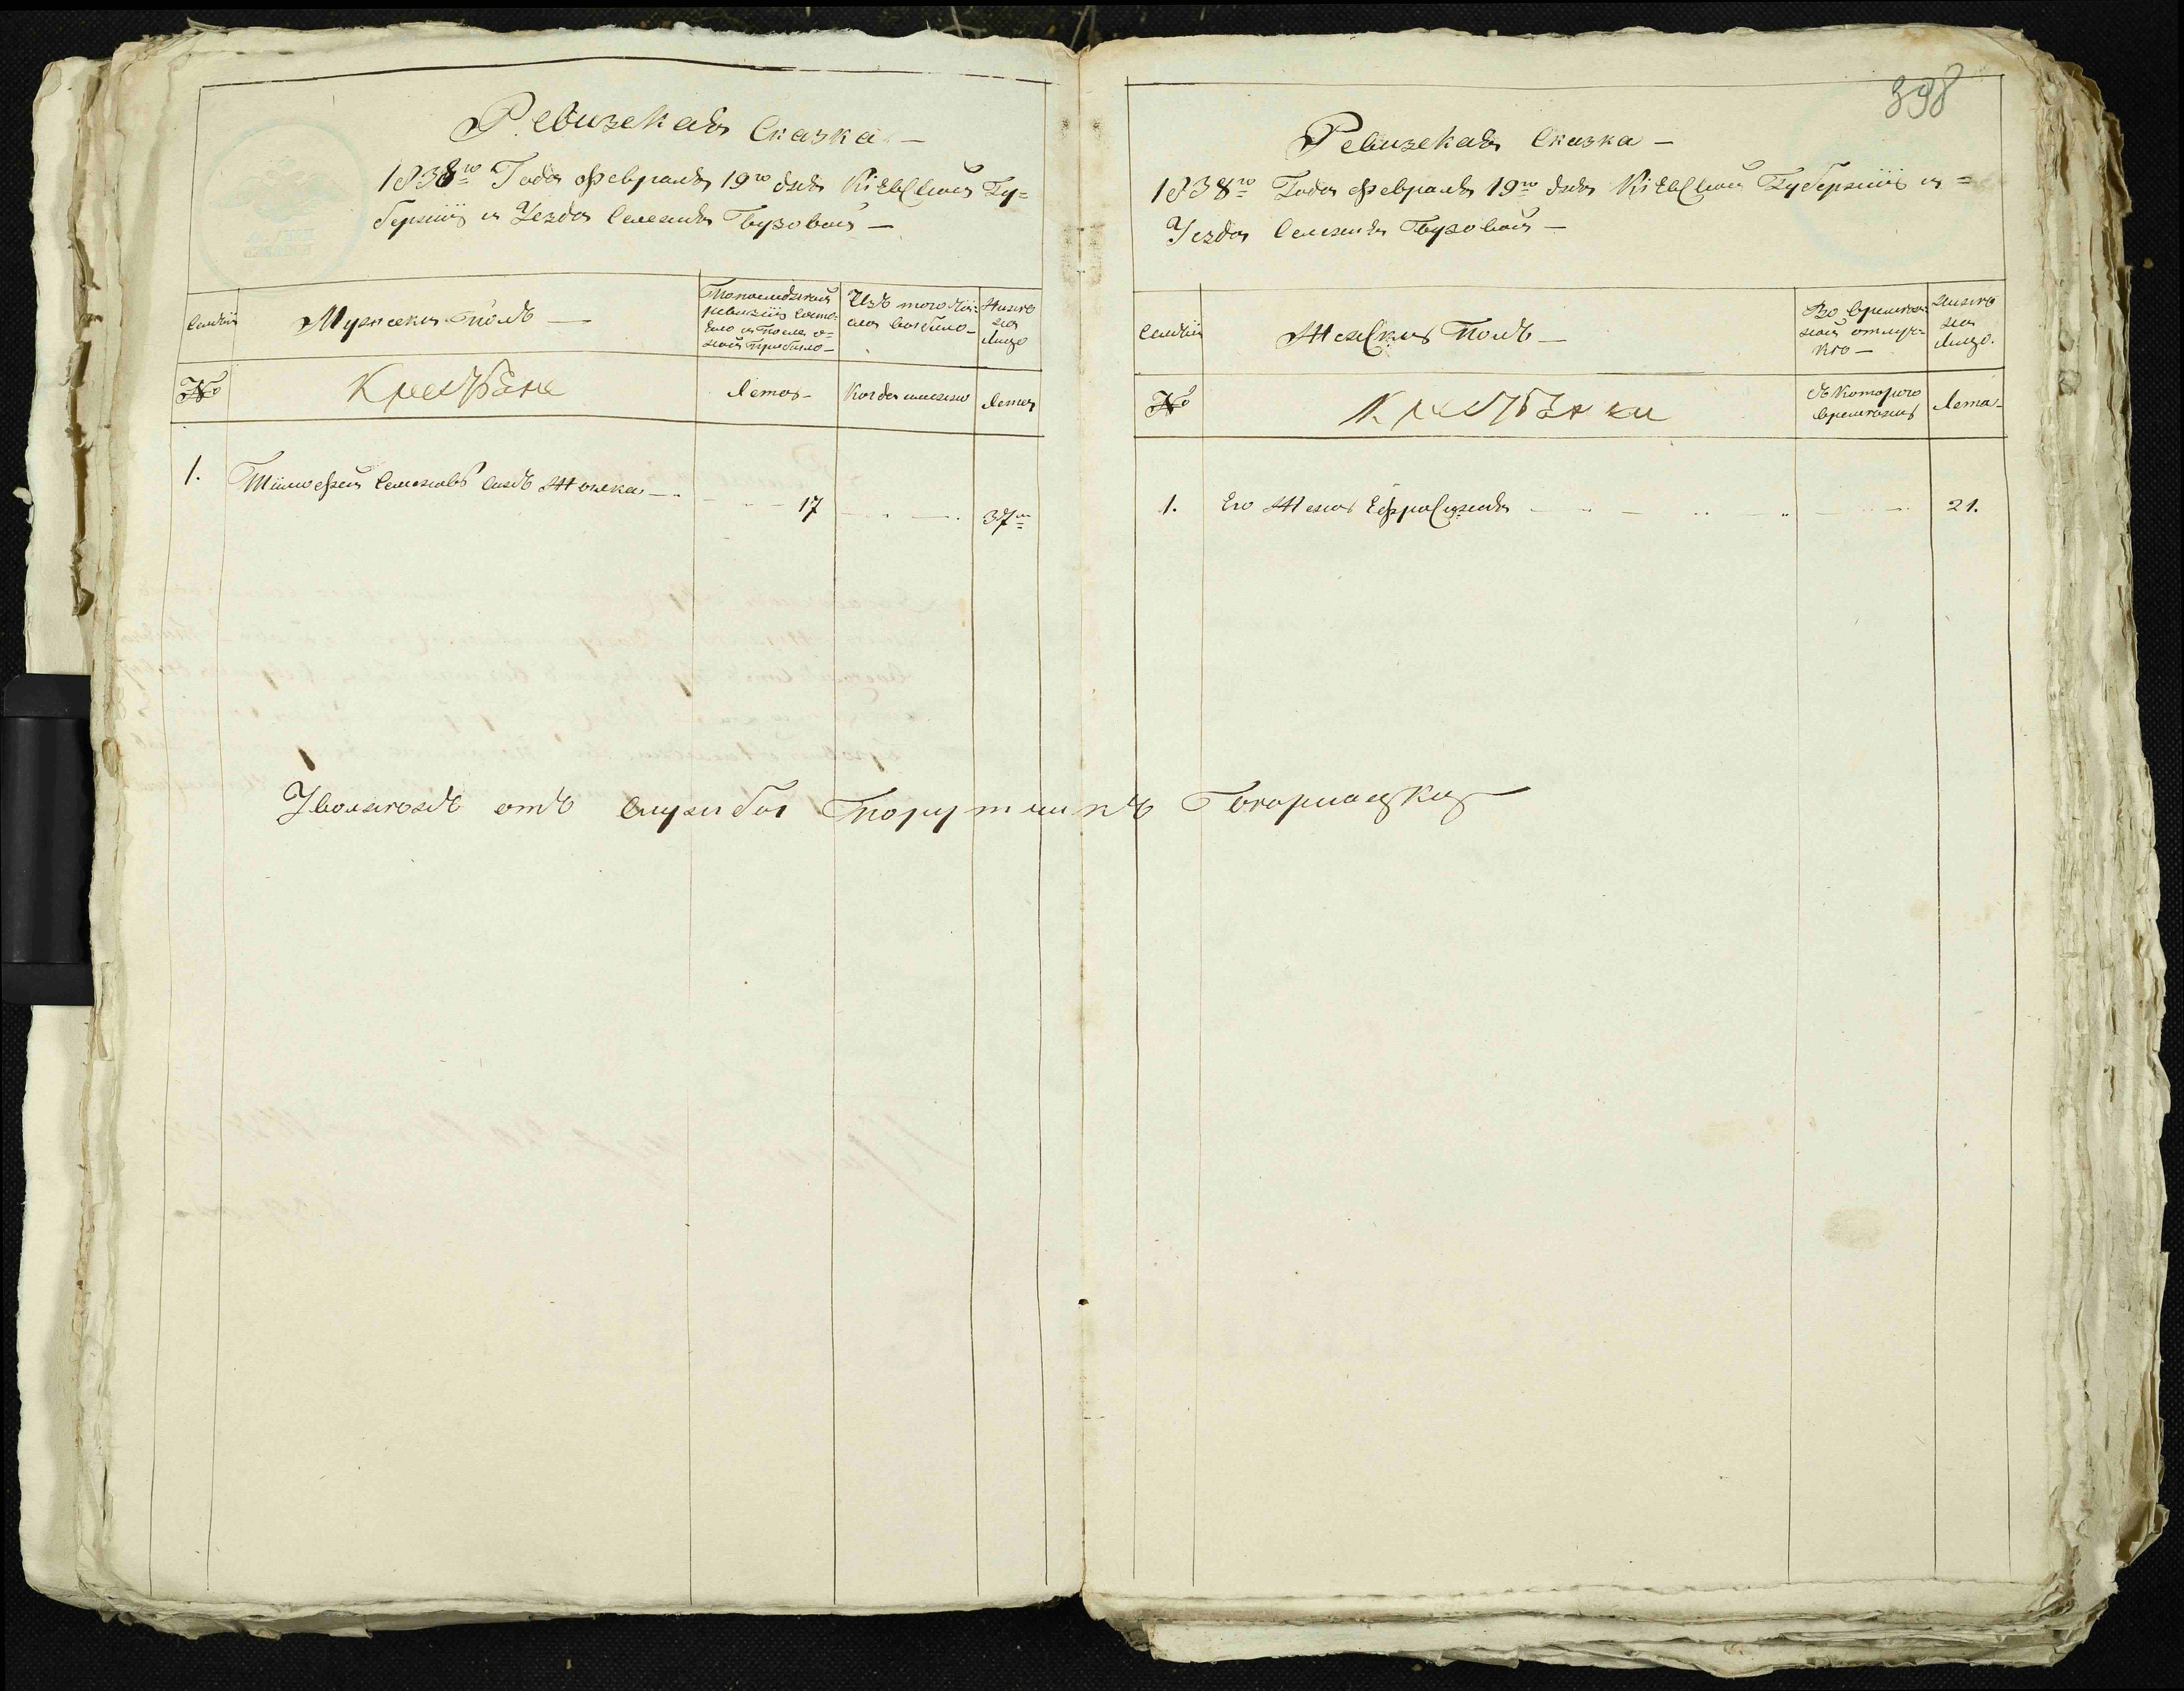 398
Ревизская Сказка —
1838го Года февраля 19го дня Кіевской Гу=
берніи и Уезда Селенія Бузовой —
Семьи
Мужеска Полъ —
По последней
ревизіи состо-
яло и после о-
ной прибыло —
Изъ того чи-
сла выбыло —
Ныне
на
лицо
№
Крестьяне
Лета —
Когда именно
Лета
1. Тимофей Семеновъ сынъ 17 37
Уволенъ отъ службы Порутчикъ
Ревизская Сказка —
1838го Года февраля 19го дня Кіевской Губерніи и =
Уезда Селенія Бузовой —
Семьи
Женскій Полъ —
Во времен-
ной отлуч-
ке —
Ныне
на
лицо.
№
Крестьянки
Съ Которого
времени
Лета —
1. Его Жена Ефросинія 21.